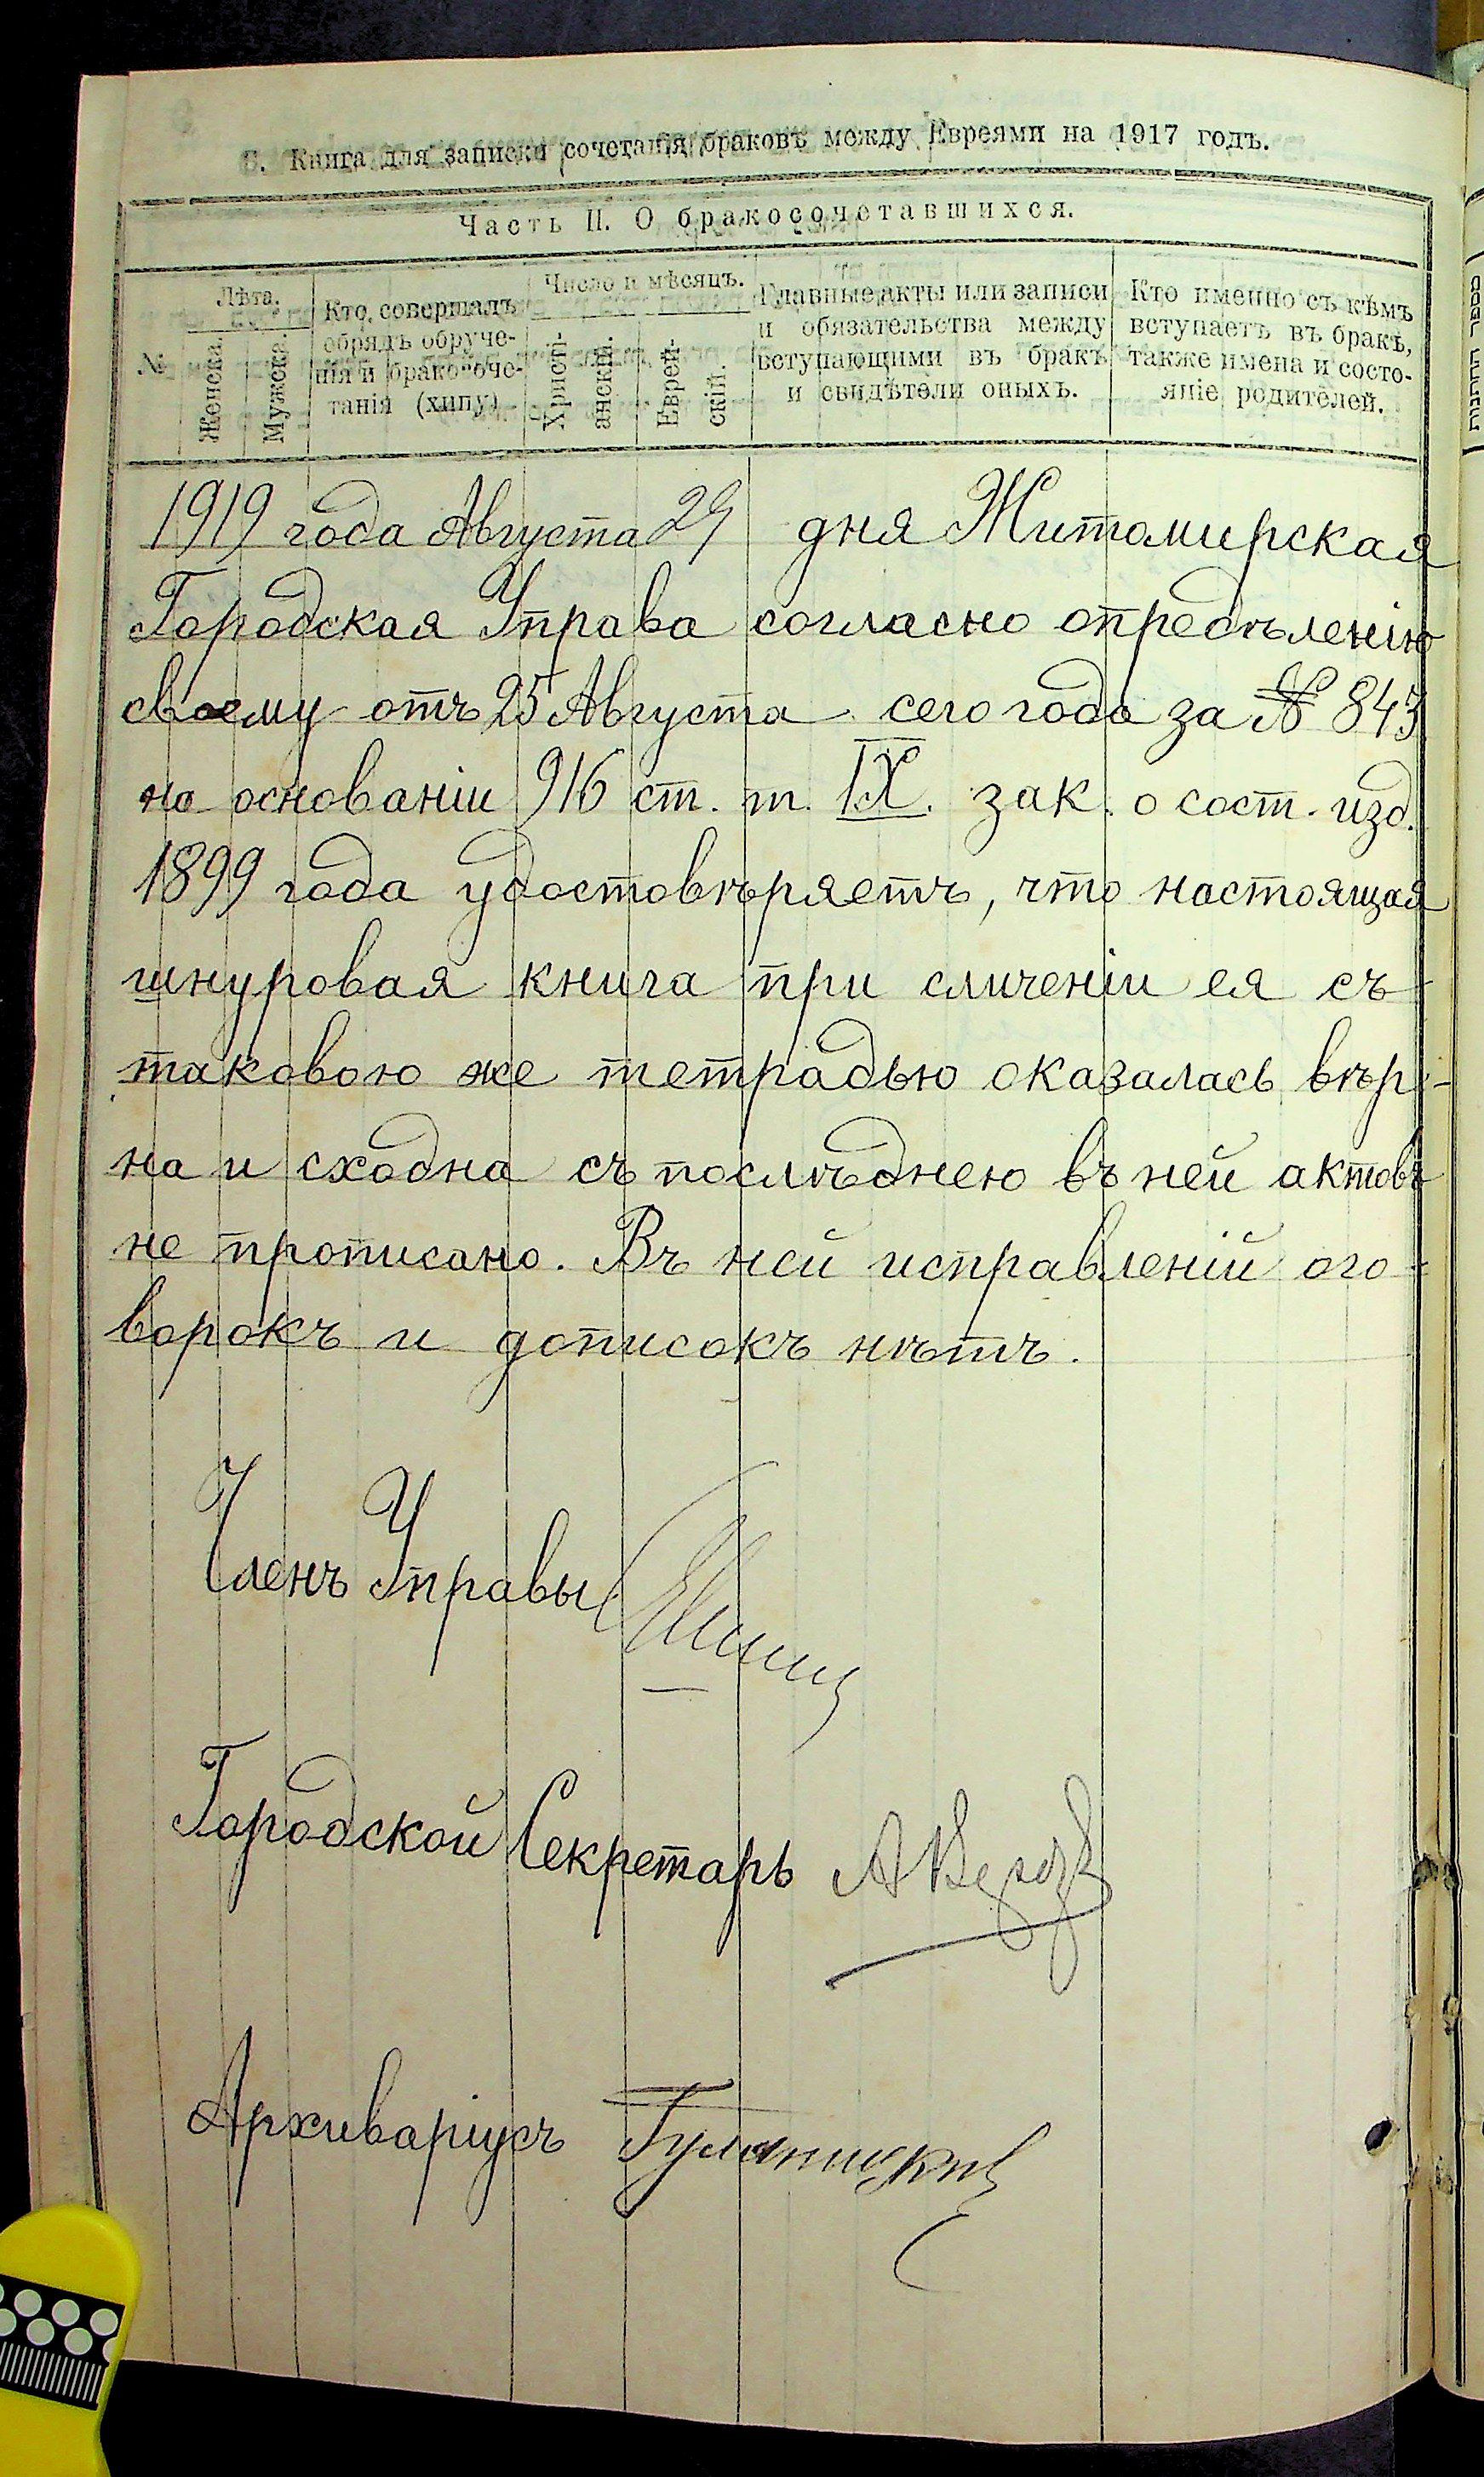 С. Книга для записки сочетанія браковъ между Евреями на 1917 годъ.
Часть II. О бракосочетавшихся.
№
Лѣта.
Женска.
Мужска.
Кто совершалъ
обрядъ обруче-
нія и бракосоче-
танія (хипу)
Число и мѣсяцъ.
Христі-
анскій.
Еврей-
скій.
Главные акты или записи
и обязательства между
вступающими въ бракъ
и свидѣтели оныхъ.
Кто именно съ кѣмъ
вступаетъ въ бракъ,
также имена и состо-
яніе родителей.
1919 года Августа 29 дня Житомирская
Городская Управа согласно опредѣленію
своему отъ 25 Августа сего года за № 843
на основаніи 916 ст. т. IX. зак. о сост. изд.
1899 года удостовѣряетъ, что настоящая
шнуровая книга при сличеніи ея съ
таковою же тетрадью оказалась вѣр-
на и сходна съ послѣднею въ ней актовъ
не прописано. Въ ней исправленій ого-
ворокъ и дописокъ нѣтъ.
Членъ Управы
Городской Секретарь
Архиваріусъ